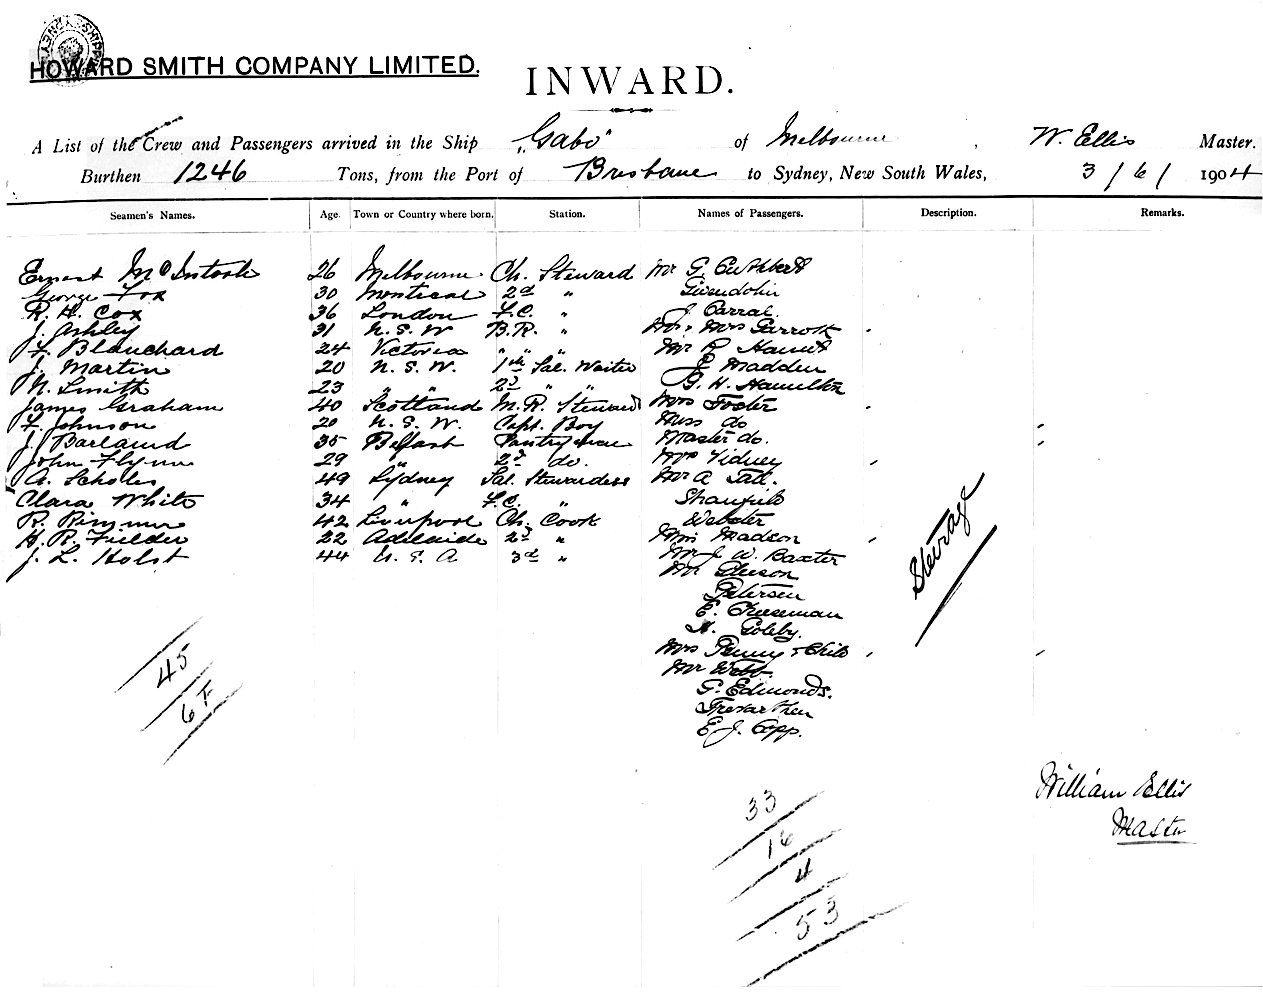 HOWARD SMITH COMPANY LIMITED.
INWARD.
A List of the Crew and Passengers arrived in the Ship "Gabo" of Melbourne, W. Ellis Master.
Burthen 1246 Tons, from the Port of Brisbane to Sydney, New South Wales, 3/6/1904
Seamen's Names. Age. Town or Country where born. Station. Names of Passengers. Description. Remarks.
Ernest McIntosh 26 Melbourne Ch. Steward Mr G. Cuthbert
George Fox 30 Montreal 2d " Gwendolin
R. H. Cox 36 London F.C. " J. Carral
J. Ashley 31 N. S. W B.R. " Mr & Mrs Parrott
F. Blanchard 24 Victoria " " " Mr R
J. Martin 20 N. S. W. 1st Sal. Waiter E Madden
N. Smith 23 " " 2d " " G. H. Hamilton
James Graham 40 Scotland M. R. Steward Mrs Foster
F. Johnson 20 N. S. W. Capt. Boy Miss do
J. Barlaind 35 Belfast Pantryman Master do.
John Flynn 29 " 2d do. Mrs Vidney
A. Scholes 49 Sydney Sal. Stewardess Mr A Tait.
Clara White 34 " F.C. "
R. Rimmer 42 Liverpool Ch. Cook Webster
H. R. Fielder 22 Adelaide 2d " Mrs Madsen
J. L. Holst 44 U. S. A 3rd " Mr J. W. Baxter
Mr Gleeson
Petersen
E. Cheeseman
H. Goleby.
Mrs Penny & Child
Mr Webb.
G. Edmonds.
Trevarthen
E J. Copp.
Steerage
45
6 F
33
16
4
53
William Ellis
Master